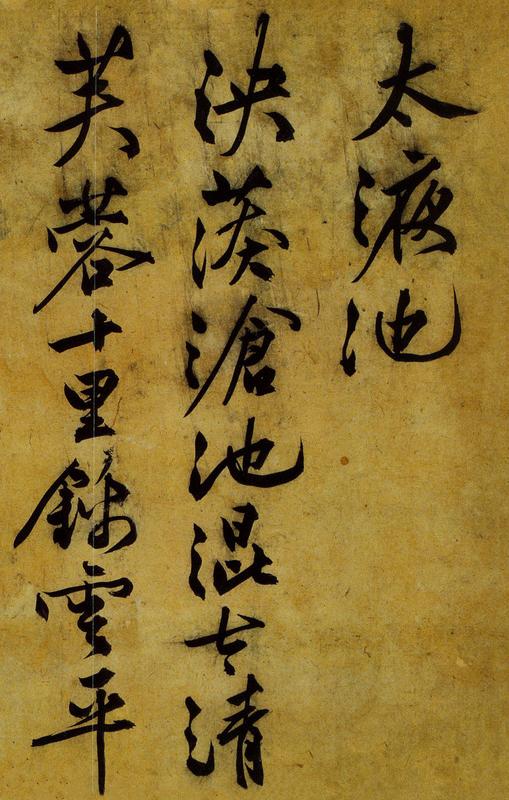 太液池
泱漭滄池混太清
芙蓉十里錦雲平